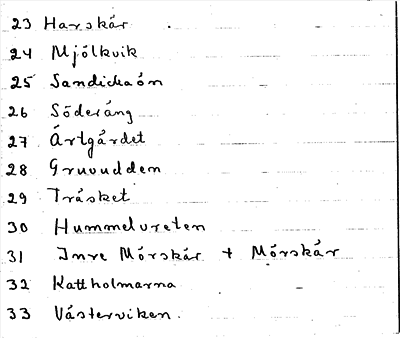 23 Harskär
24 Mjölkvik
25 Sandickaön
26 Söderäng
27 Ärtgärdet
28 Gruvudden
29 Träsket
30 Hummelvreten
31 Inre Mörskär + Mörskär
32 Kattholmarna
33 Västerviken.